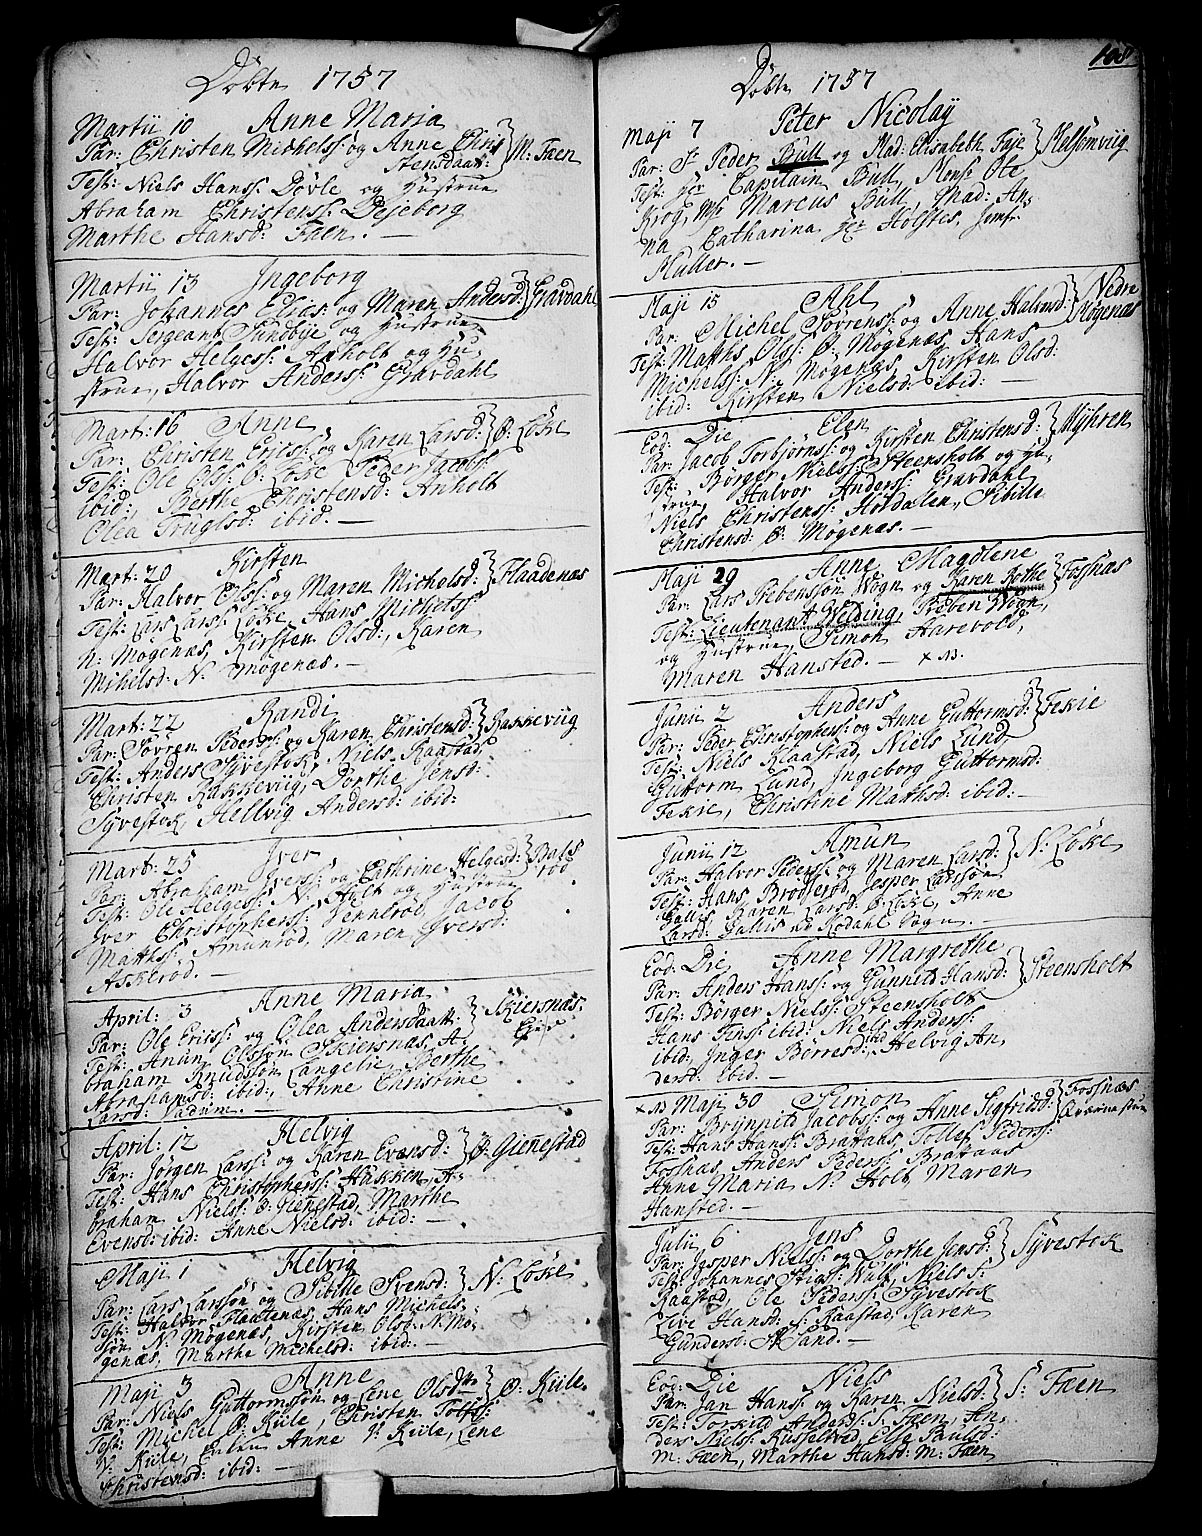 Döbte 1757
Martii 10 Anne Maria
Par: Christen Michelss: og Anne Chri
stensdaat: } M: Fæen
Test: Niels Hanss: Døvle og Hustrue
Abraham Christenss: Dejeborg
Marthe Hansd: Fæen. —
Martii 13 Ingeborg
Par: Johannes Elias: og Maren Andersd: } Gravdahl
Test: Sergeant Sundbye og Hustrue
Halvor Helgess: Anholt og Hu-
strue, Halvor Anderss: Gravdahl
Mart: 16 Anne
Par: Christen Erichss: og Karen Larsd: } Ø: Løke
Test: Ole Olss: Ø: Løke Peder Jacobs:
ibid: Berthe Christensd: Anholt
Olea Truglsd: ibid. —
Mart: 20 Kirsten
Par: Halvor Olss: og Maren Michelsd: } Flaadenæs
Test: Lars Larss: Løke Hans Michelss:
N: Mogenæs, Kirsten Olsd:, Karen
Mihelsd: N: Mogenæs. —
Mart: 22 Randi
Par: Søvren Pederss: og Karen Christensd: } Rakkeviig
Test: Anders Syvestok, Niels Raastad
Christen Rakkeviig, Dorthe Jensd:
Syvestok, Hellvig Andersd: ibid:
Mart: 25 Iver
Par: Abraham Iverss: og Cathrine Helgesd: } Bals
rød
Test: Ole Helgess: N: Hult og Hustrue
Iver Christopherss: Vennerød, Jacob
Mathss: Amunrød, Maren Iversd:
Askerød. —
April: 3 Anne Maria
Par: Ole Ericss: og Olea Andersdaatt: } Skiersnæs:
Test: Anun Olssøn Skiersnæs, A-
braham Knudssøn Langelie, Berthe
Abrahamsd: ibid:, Anne Christine
Larsd: Vadum. —
April: 12 Helvig
Par: Jørgen Larss: og Karen Evensd: } Ø: Gienestad
Test: Hans Christopherss: Hakken, A-
braham Nielss: Ø: Gienestad, Marthe
Evensd: ibid: Anne Nielsd: ibid: —
Maji 1 Helvig
Par: Lars Larssøn og Sibille Svensd: } N: Løke
Test: Halvor Flaatenæs, Hans Michels-
søn N: Mogenæs, Kirsten Olsd: N: Mo-
genæs, Marthe Michelsd: ibid: —
Maji 3 Anne
Par: Niels Guttormssøn og Lene Olsdtr } Ø: Kiile
Test: Michel Ø: Kiile, Christen Tolfss:
V: Kiile, Anne V: Kiile, Lene
Christensd: ibid: —
108
Döbte 1757
Maji 7 Peter Nicolay
Par: Sr Peder Bull og Mad: Elisabeth Faje } Melsomviig
Test: Hr Capitain Bull, Mons: Ole
Krog, Mr Marcus Bull, Mad: An-
na Catharina Hr Holstes, Jomfr:
Muller. —
Maji 15 Ahl
Par: Michel Søvrenss: og Anne Halvorsd: } Nedre
Mogenæs
Test: Matths Olss: Ø: Mogenæs, Hans
Michelss: N: Mogenæs, Kirsten Olsd:
ibid: Kirsten Nielsd: ibid: —
Eod: Die Elen
Par: Jacob Torbjørnss: og Kirsten Christensd: } Myhren
Test: Børger Nielss: Steensholt og Hu-
strue, Halvor Anderss: Gravdahl
Niels Christenss: Hovdalen, Sibille
Christensd: Ø: Mogenæs. —
Maji 29 Anne Magdlene
Par: Lars Prebenssøn Wogn og Karen Rothe } Fossnæs
Test: Lieutenant Velding, Preben Wogn,
og Hustrue, Simon Aarevold,
Maren Hansted. — x M.
Junii 2 Anders
Par: Peder Christophess: og Anne Guttormsd: } Fekie
Test: Niels Klaastad, Niels Lund,
Guttorm Lund, Ingeborg Guttormsd:
Fekie, Christine Mathsd: ibid: —
Junii 12 Amun
Par: Halvor Pederss: og Maren Larsd: } N: Løke
Test: Hans Brofferød, Jesper Larssøn
Gallis Karen Larsd: Ø: Løke, Anne
Larsd: Gallis ud Kodahl Sogn. —
Eod: Die Anne Margrethe
Par: Anders Hanss: og Gunnild Hansd: } Steensholt
Test: Børger Nielss: Steensholt
Hans Finss ibid: Niels Anderss:
ibid: Inger Børresd: ibid: Helvig An-
dersd: ibid. —
x M Maji 30 Simon
Par: Brynnild Jacobss: og Anne Sigfridsd: } Fossnæs
Qværnestue
Test: Hans Hanss: Brataas, Tollef Pederss:
Fossnæs, Anders Pederss: Brataas
Anne Maria N: Holt, Maren
Hansted. —
Julii 6 Jens
Par: Jesper Nielss: og Dorthe Jensd: } Syvestok
Test: Johannes Stigss: Hull, Niels S:
Raastad, Ole Pederss: Syvestok
Live Hansd: S: Raastad, Karen
Gundersd: N: Sand. —
Eod: Die Niels
Par: Jan Hanss: og Karen Nielsd: } S: Fæen
Test: Torkild Anderss: S: Fæen, An-
ders Nielss: Russeltved, Else Pulsd:
M: Fæen, Marthe Hansd: M: Fæen